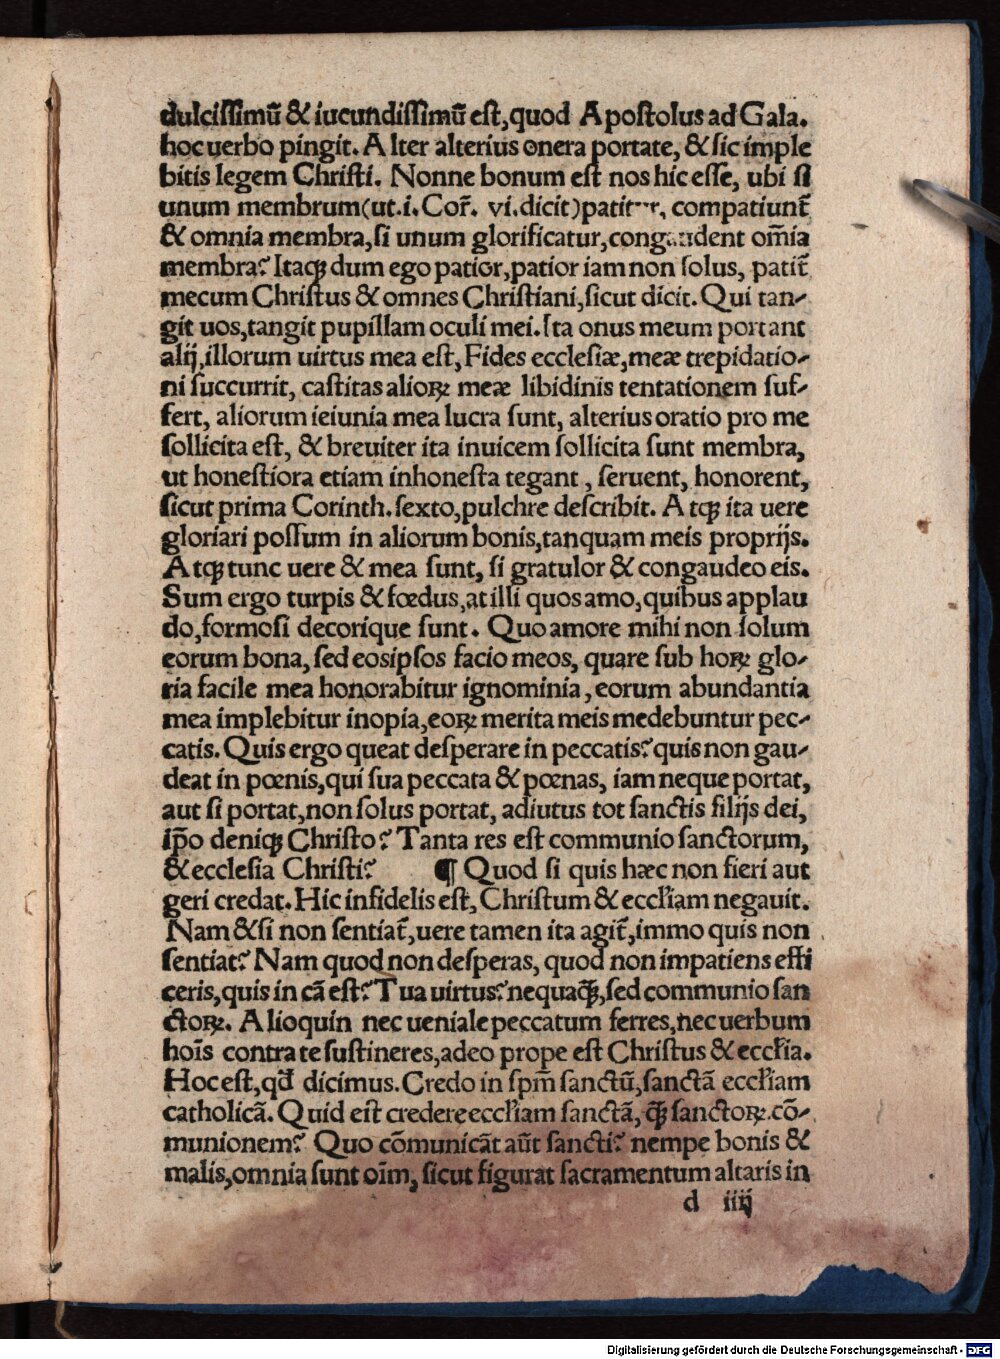 dulcissimū & iucundissimū est, quod Apostolus ad Gala.
hoc uerbo pingit. Alter alterius onera portate, & sic imple
bitis legem Christi. Nonne bonum est nos hic esse, ubi si
unum membrum (ut .i. Cor̃. vi. dicit) compatiunt̃
& omnia membra, si unum glorificatur, congaudent om̃ia
membra? Itaqꝫ dum ego patior, patior iam non solus, patit̃
mecum Christus & omnes Christiani, sicut dicit. Qui tan-
git uos, tangit pupillam oculi mei. Ita onus meum portant
alij, illorum uirtus mea est, Fides ecclesiæ, meæ trepidatio-
ni succurrit, castitas alioꝝ meæ libidinis tentationem suf-
fert, aliorum ieiunia mea lucra sunt, alterius oratio pro me
sollicita est, & breuiter ita inuicem sollicita sunt membra,
ut honestiora etiam inhonesta tegant, seruent, honorent,
sicut prima Corinth. sexto, pulchre describit. Atqꝫ ita uere
gloriari possum in aliorum bonis, tanquam meis proprijs.
Atqꝫ tunc uere & mea sunt, si gratulor & congaudeo eis.
Sum ergo turpis & fœdus, at illi quos amo, quibus applau
do, formosi decorique sunt. Quo amore mihi non solum
eorum bona, sed eosipsos facio meos, quare sub hoꝝ glo-
ria facile mea honorabitur ignominia, eorum abundantia
mea implebitur inopia, eoꝝ merita meis medebuntur pec-
catis. Quis ergo queat desperare in peccatis? quis non gau-
deat in pœnis, qui sua peccata & pœnas, iam neque portat,
aut si portat, non solus portat, adiutus tot sanctis filijs dei,
ip̃o deniqꝫ Christo? Tanta res est communio sanctorum,
& ecclesia Christi? ¶ Quod si quis hæc non fieri aut
geri credat. Hic infidelis est, Christum & eccl̃iam negauit.
Nam & si non sentiat̃, uere tamen ita agit̃, immo quis non
sentiat? Nam quod non desperas, quod non impatiens effi
ceris, quis in cã est? Tua uirtus? nequaꝙ̃, sed communio san
ctoꝝ. Alioquin nec ueniale peccatum ferres, nec uerbum
hoĩs contra te sustineres, adeo prope est Christus & eccl̃ia.
Hoc est, qđ dicimus. Credo in spm̃ sanctũ, sanctã eccl̃iam
catholicã. Quid est credere eccl̃iam sanctã, ꝙ̃ sanctoꝝ. cõ-
munionem? Quo cõmunicãt aũt sancti? nempe bonis &
malis, omnia sunt oĩm, sicut figurat sacramentum altaris in
d iiij
Digitalisierung gefördert durch die Deutsche Forschungsgemeinschaft - DFG